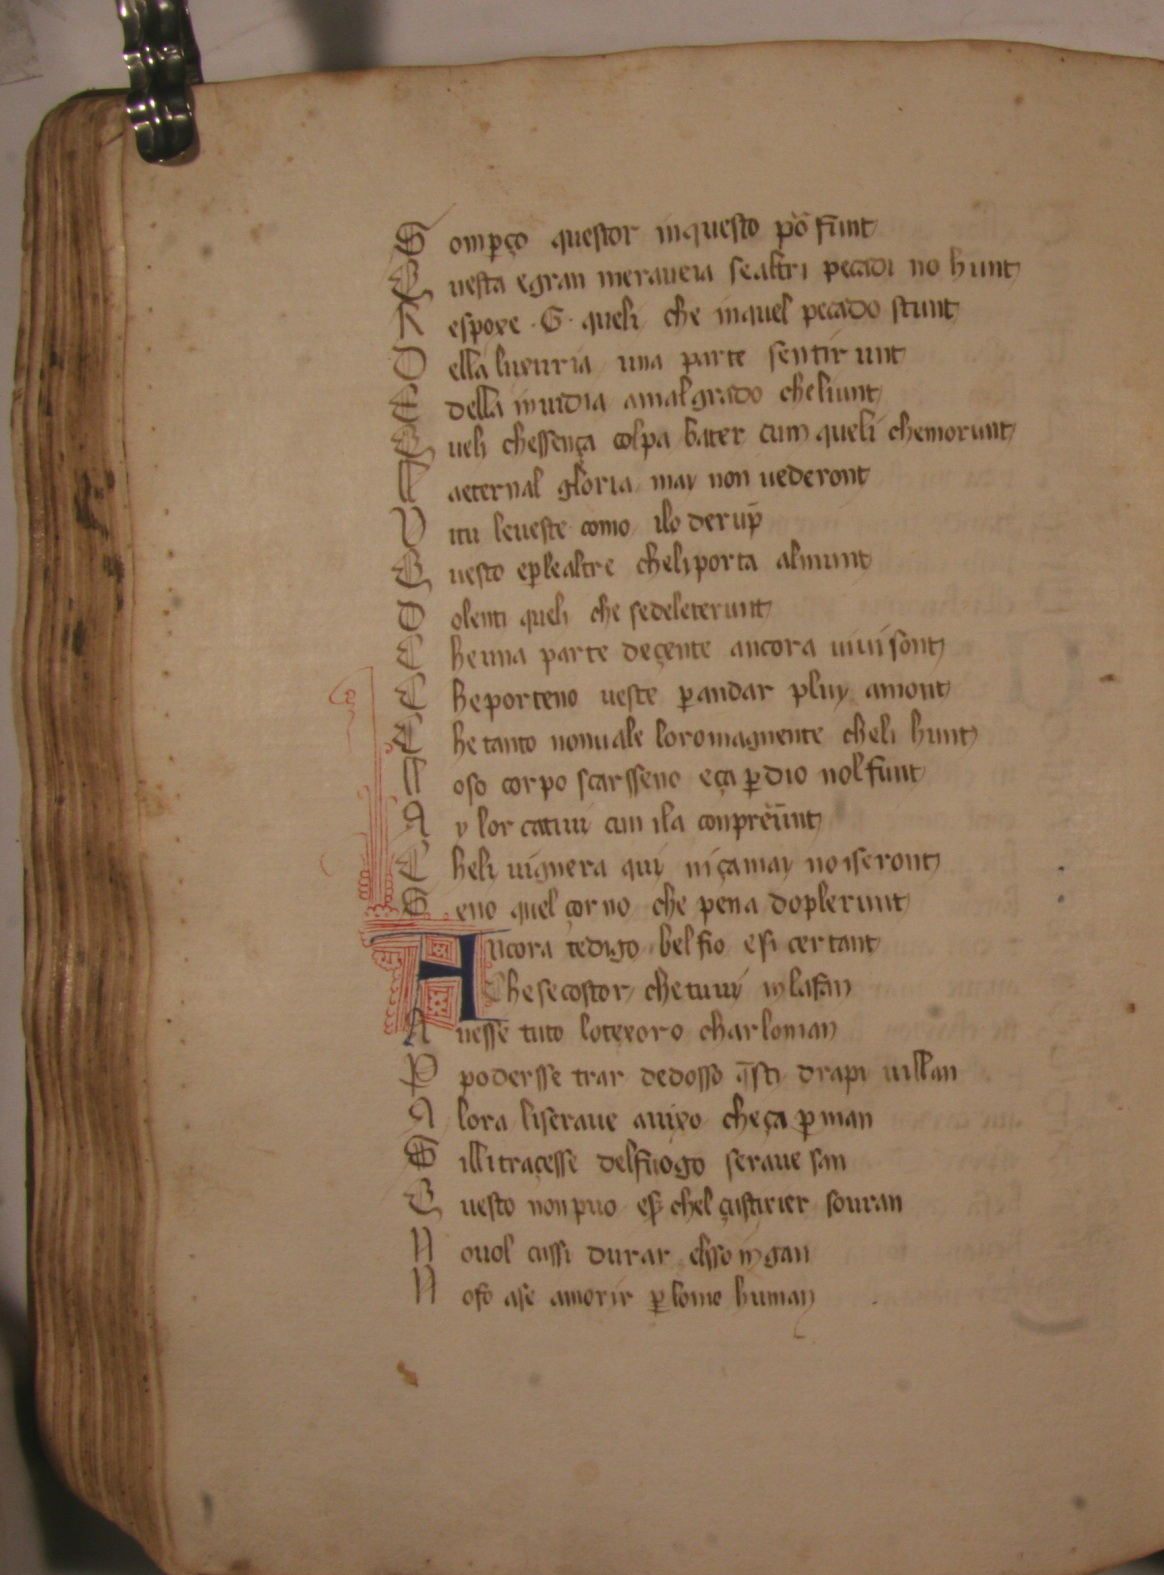 S omꝑço questor inquesto põ funt
Q uesta egran meraueia sealtri pecadi no hunt
R espoxe .G. queli che inquel pecado stunt
D ella luxuria una parte sentir unt
E della inuidia amalgrado cheliunt
Q ueli chessença colpa bater cum queli chemorunt
L aeternal gloria may non uederont
V itu leueste como ilo derup̄
Q uesto eꝑlealtre cheliporta alinunt
D olenti queli che sedeleterunt
C he una parte deçente ancora uiui sont
C he porteno ueste ꝑ andar pluy amont
C he tanto nonuale loromagnente cheli hunt
L oso corpo scarsseno eça ꝑ dio nol funt
A y lor catiui cun ila conpreũnt
C heli uignera qui niçamay no iseront
S eno quel çorno che pena doplerunt
Ancora tedigo bel fio esi certant
Che se costor chetuui inlafan
A uesse tuto lotexoro charloman
P podersse trar dedosso q̄sti drapi uillan
A lora liseraue auixo cheça ꝑ man
S illitraçesse delfuogo seraue san
Q uesto nonpuo esꝑ chel çustixier souran
N ouol cussi durar elsso ingan
N ofo ase amorir ꝑ lomo human